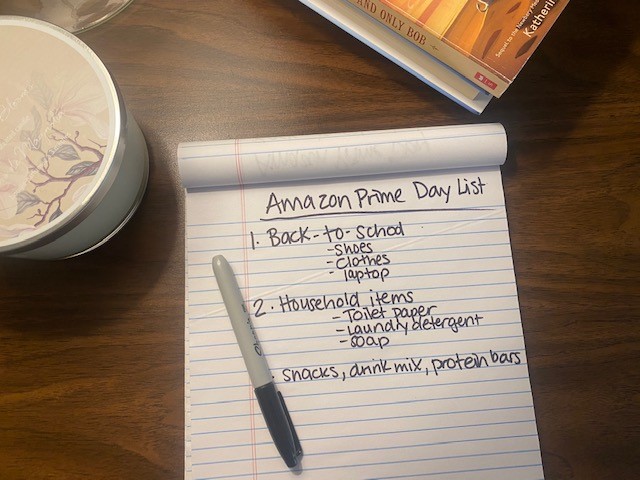 AND ONLY BOB
Sequel to the Newbery Medal
Katheri
Amazon Prime Day List
1. Back-to-school
-Shoes
-Clothes
-laptop
2. Household items
-Toilet paper
-Laundry detergent
-soap
. snacks, drink mix, protein bars